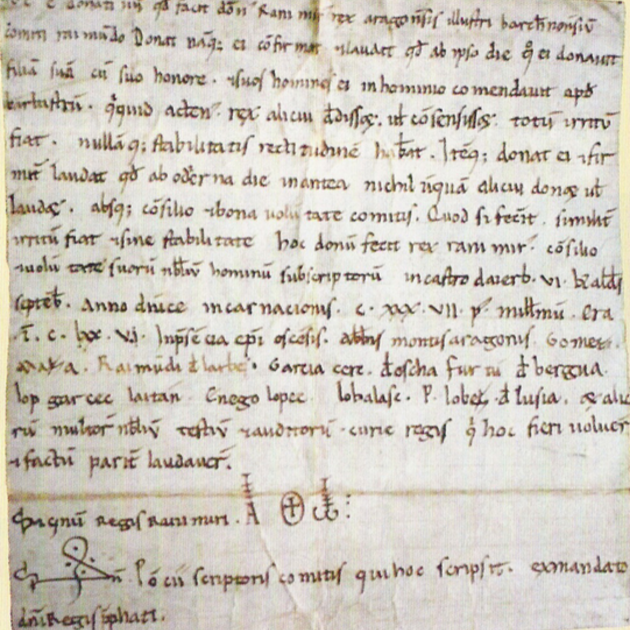 donati nu qd facit don Ranimir rex aragonensis illustri barchenonensiu
comiti raimundo Donat naq; ei cofirmat & laudat qd ab ipso die q ei donauit
filia sua cu suo honore. & suos homines ei in hominio comendauit apd
barbastru. qquid acten rex alicui totu irritu
fiat. nulla q; stabilitatis rectitudine habat. Iteq; donat ei & fir
mit laudat qd ab oderna die inantea nichil uqua alicui done ul
laude. absq; cosilio & bona volutate comitis. Quod si fecit. similit
irritu fiat & sine stabilitate hoc donu fecit rex ranimir. cosilio
& volutate suoru nbliu hominu subscriptoru in castro daierb. VI. kaldis
septeb. Anno diuice incarnacionis. c. xxx. VII. p millmu. Era
T. c. lxx. v.i. In psecia epi oscesis. abbis montisaragonis. Gomez.
Raimudi d larbe. Garcia cerc. d oscha furtu d bergua.
lop garcec laitan. Enego lopec. lobalasc. P. lobec d lusia. & alio
ru multor nbliu testiu & auditoru curie regis q hoc fieri voluer
& factu parit laudauer.
Signu regis Ranimiri.
Pocii scriptoris comitis qui hoc scripsit. exmandato
dni Regis pphati.